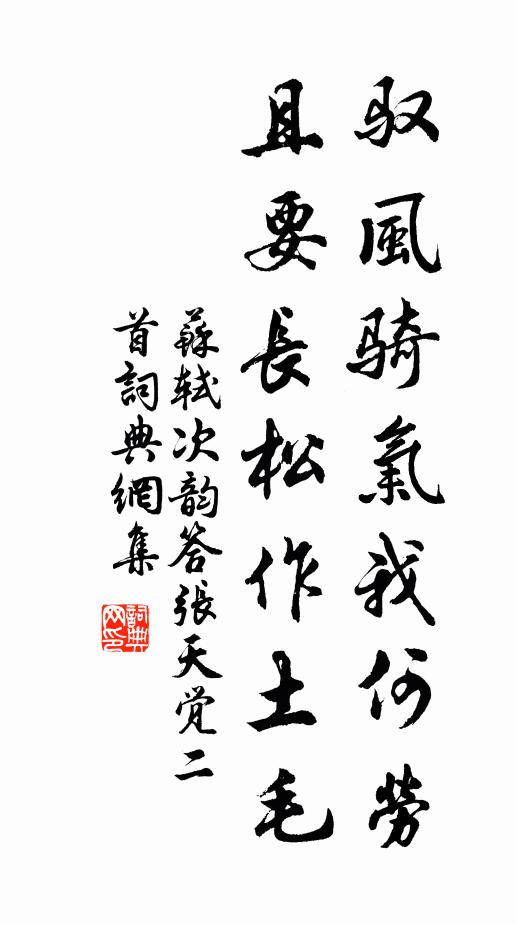 驭風骑氣我何勞
且要長松作土毛
蘇軾次韵答張天觉二
首詞典網集
詞典网印